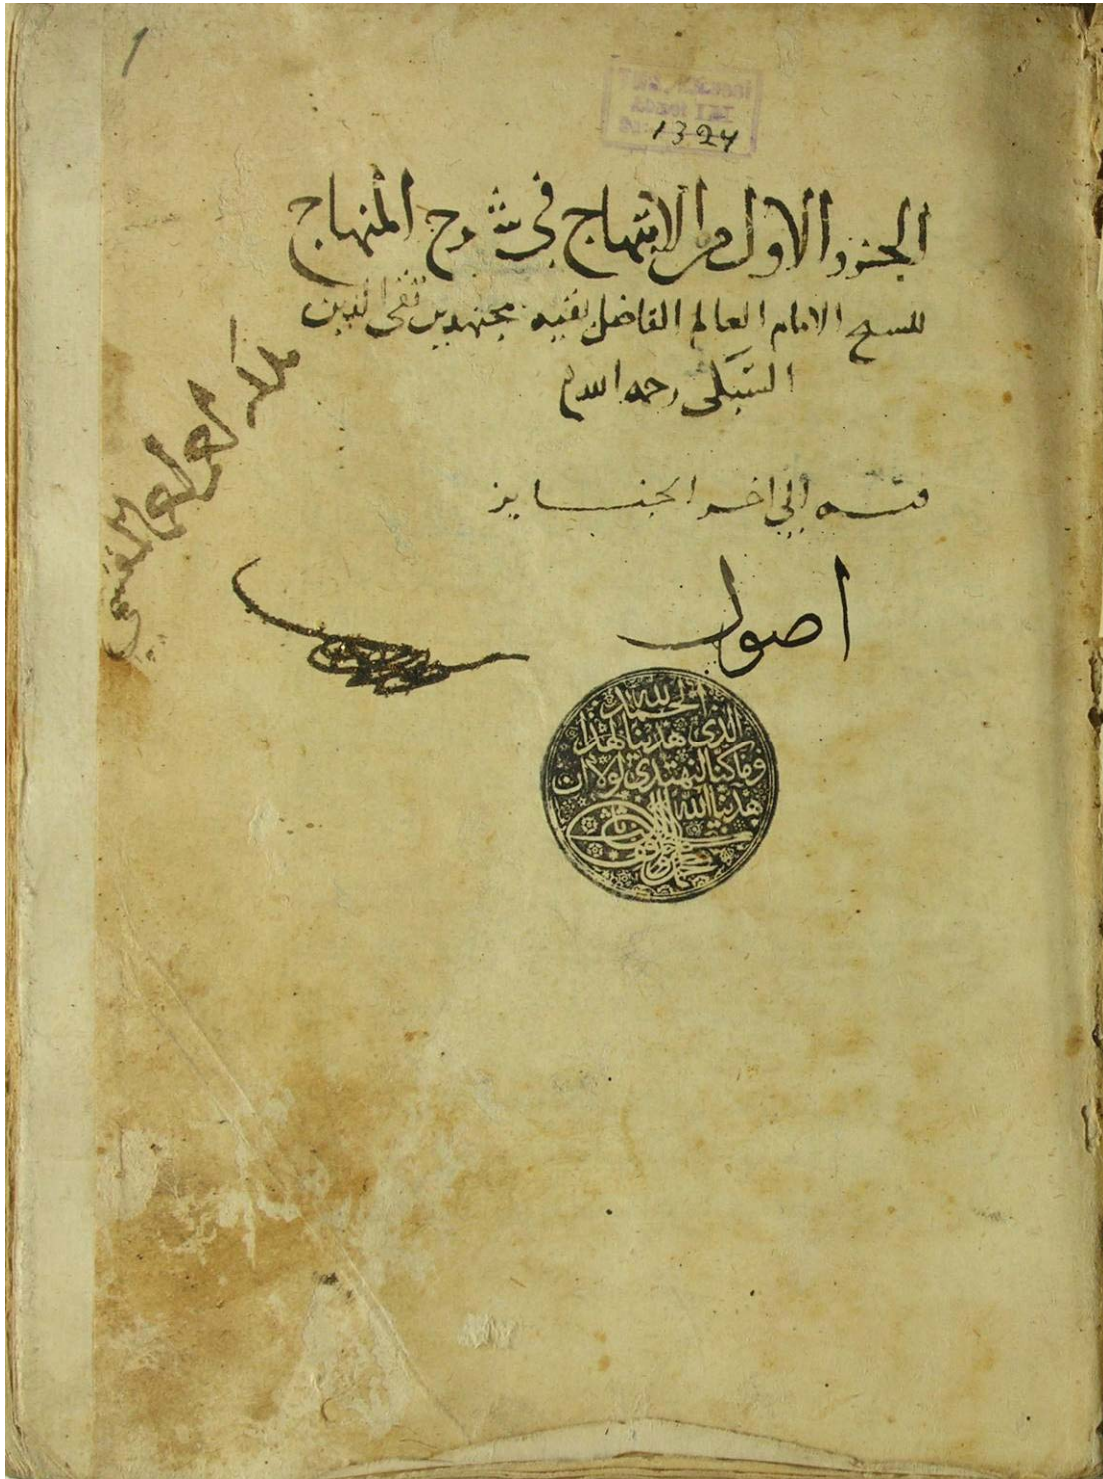 1
1324
الجزو الاول من الابتهاج في شرح المنهاج
للشيخ الامام العالم الفاضل بقيه مجتهدين تقى الدين
السبكى رحمه الله
فيه إلي اخر الجنايز
اصول
الحمد لله
الذى هدينا لهذا
وما كنا لنهتدى لولا ان
هدينا الله